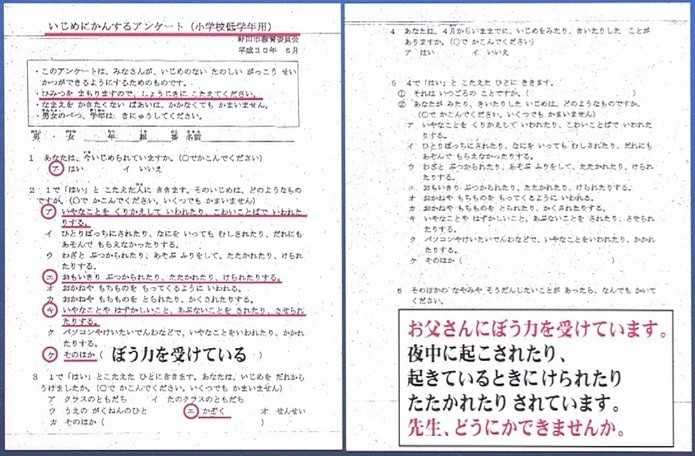 いじめにかんするアンケート（小学校低学年用）
野田市教育委員会
平成３０年　６月
・このアンケートは、みなさんが、いじめのない たのしい がっこう せい
かつができるようにするためのものです。
・ひみつを まもりますので、しょうじきに こたえてください。
・なまえを かきたくない ばあいは、かかなくても かまいません。
・男女のべつ、学年は、きにゅうしてください。
男 ・ 女　年　組　番　名前
１　あなたは、今いじめられていますか。（○でかこんでください）
ア　はい　イ　いいえ
２　１で「はい」と こたえた人に ききます。そのいじめは、どのようなもの
ですか。（○で かこんでください。いくつでも かまいません）
ア　いやなことを くりかえして いわれたり、こわいことばで いわれた
りする。
イ　ひとりぼっちにされたり、なにを いっても むしされたり、だれにも
あそんで もらえなかったりする。
ウ　わざと ぶつかられたり、あそぶ ふりをして、たたかれたり、けられ
たりする。
エ　おもいきり ぶつかられたり、たたかれたり、けられたりする。
オ　おかねや もちものを もってくるように いわれる。
カ　おかねや もちものを とられたり、かくされたりする。
キ　いやなことや はずかしいこと、あぶないことを されたり、させられ
たりする。
ク　パソコンやけいたいでんわなどで、いやなことをいわれたり、かかれ
たりする。
ケ　そのほか（ ぼう力を受けている ）
３　１で「はい」とこたえた ひとにききます。あなたは、いじめを だれから
うけましたか。（○で かこんでください。いくつでも かまいません）
ア　クラスのともだち　イ　たのクラスのともだち
ウ　うえの がくねんのひと　エ　かぞく　オ　せんせい
カ　そのほか（　）
４　あなたは、４月からいままでに、いじめをみたり、きいたりした ことが
ありますか。（○で かこんでください）
ア　はい　イ　いいえ
５　４で「はい」と こたえた ひとに ききます。
① それは いつごろの ことですか。（　）
② あなたが みたり、きいたりした いじめは、どのようなものですか。
（○で かこんでください。いくつでも かまいません）
ア　いやなことを くりかえして いわれたり、こわいことばで いわれ
たりする。
イ　ひとりぼっちにされたり、なにを いっても むしされたり、だれにも
あそんで もらえなかったりする。
ウ　わざと ぶつかられたり、あそぶ ふりをして、たたかれたり、けら
れたりする。
エ　おもいきり ぶつかられたり、たたかれたり、けられたりする。
オ　おかねや もちものを もってくるように いわれる。
カ　おかねや もちものを とられたり、かくされたりする。
キ　いやなことや はずかしいこと、あぶないことを されたり、させら
れたりする。
ク　パソコンやけいたいでんわなどで、いやなことをいわれたり、かかれ
たりする。
ケ　そのほか（　）
６　そのほかの なやみや そうだんしたいことが あったら、なんでも かいて
ください。
お父さんにぼう力を受けています。
夜中に起こされたり、
起きているときにけられたり
たたかれたり されています。
先生、どうにかできませんか。